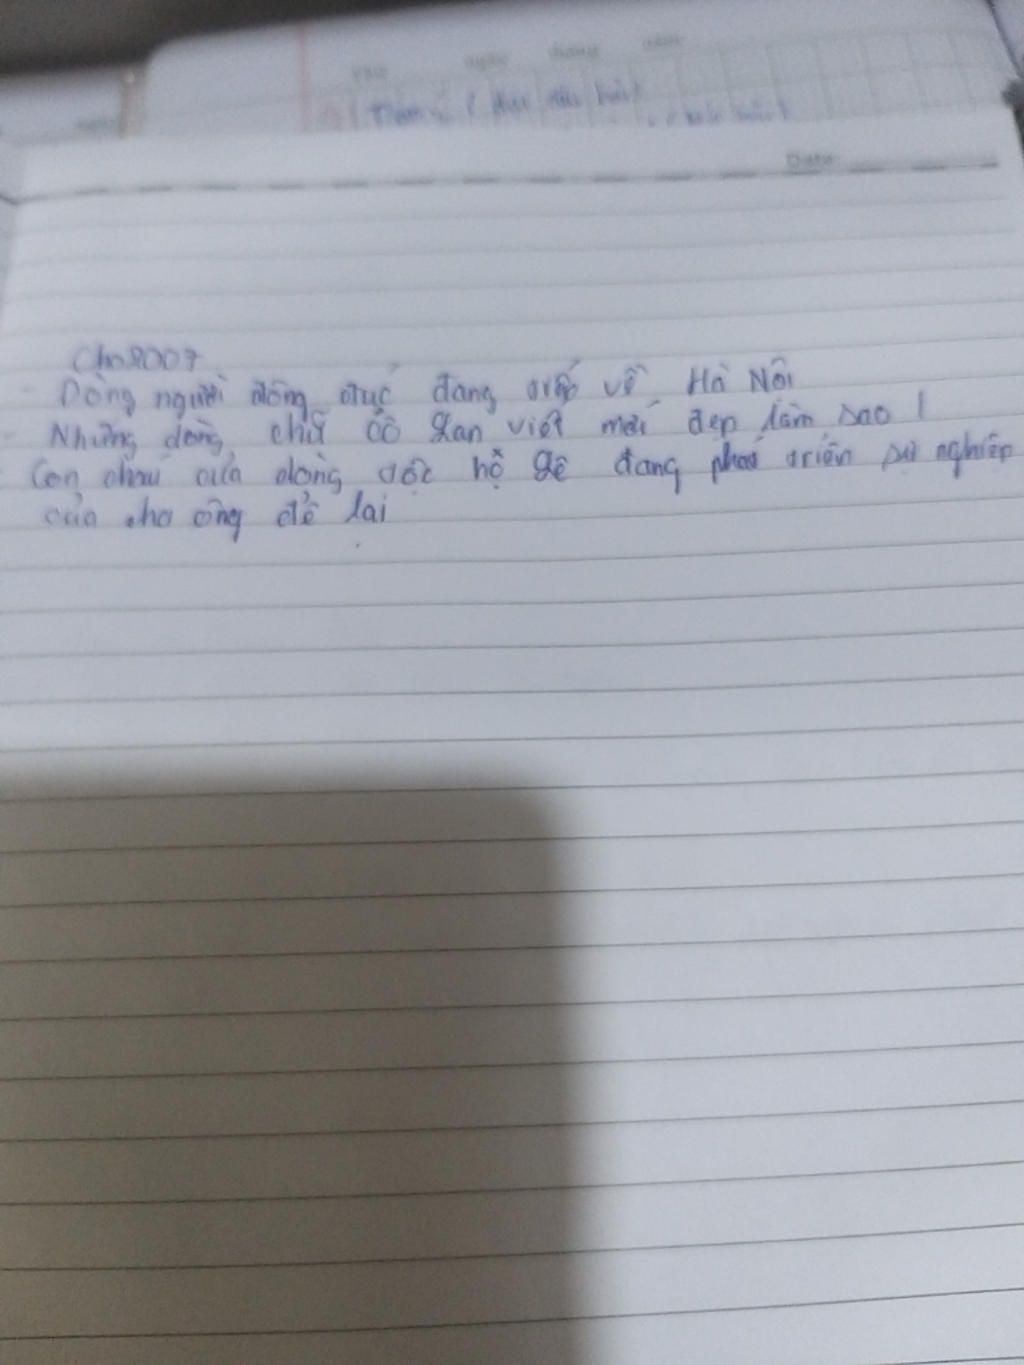 Date
Dòng người đông đúc đang về Hà Nội
Những dòng chữ cô Lan viết mới đẹp làm sao !
Con cháu của dòng tộc họ Lê đang phát triển sự nghiệp
của cha ông để lại